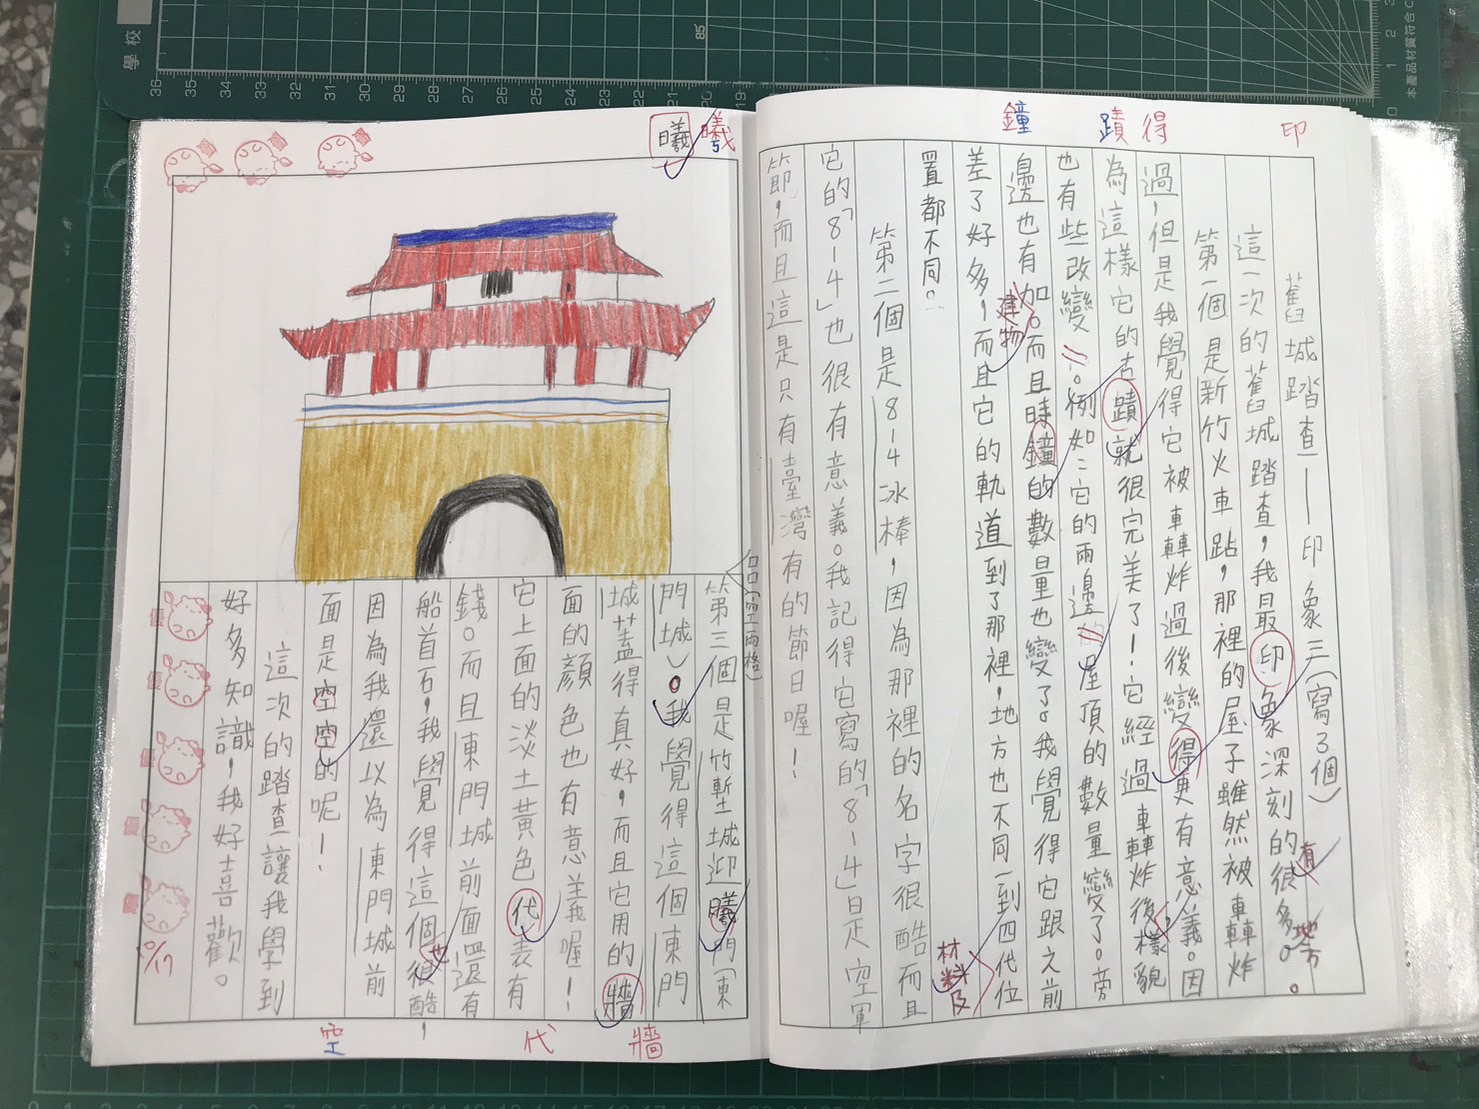 印
得
蹟
鐘
舊城踏查——印象三(寫3個)
這一次的舊城踏查，我最印象深刻的有很多地方。
第一個是新竹火車站，那裡的屋子雖然被車轉炸
過，但是我覺得它被車轉炸過後變得更有意義。因
為這樣它的古蹟就很完美了！它經過車轉炸後樣貌
也有些改變。例如：它的兩邊屋頂的數量變了。旁
邊也有加建物。而且時鐘的數量也變了。我覺得它跟之前
差了好多，而且它的軌道到了那裡，地方也不同，到四代位
置都不同。
材料及
第二個是814冰棒，因為那裡的名字很酷而且
它的「814」也很有意義。我記得它寫的「814」是空軍
節，而且這是只有臺灣有的節日喔！
曦
曦
口口(空兩格)
第三個是竹塹城迎曦門(東
門城)。我覺得這個東門
城蓋得真好，而且它用的牆
面的顏色也有意義喔！
它上面的淡土黃色代表有
錢。而且東門城前面還有
船首石，我覺得這個也很酷，
因為我還以為東門城前
面是空空的呢！
這次的踏查讓我學到
好多知識，我好喜歡。
牆
代
空
優
優
優
優
優
10/17
學校
36 35 34 33 32 31 30 29 28 27 26 25 24 23 22 21 20 19
85
本產品材質符合